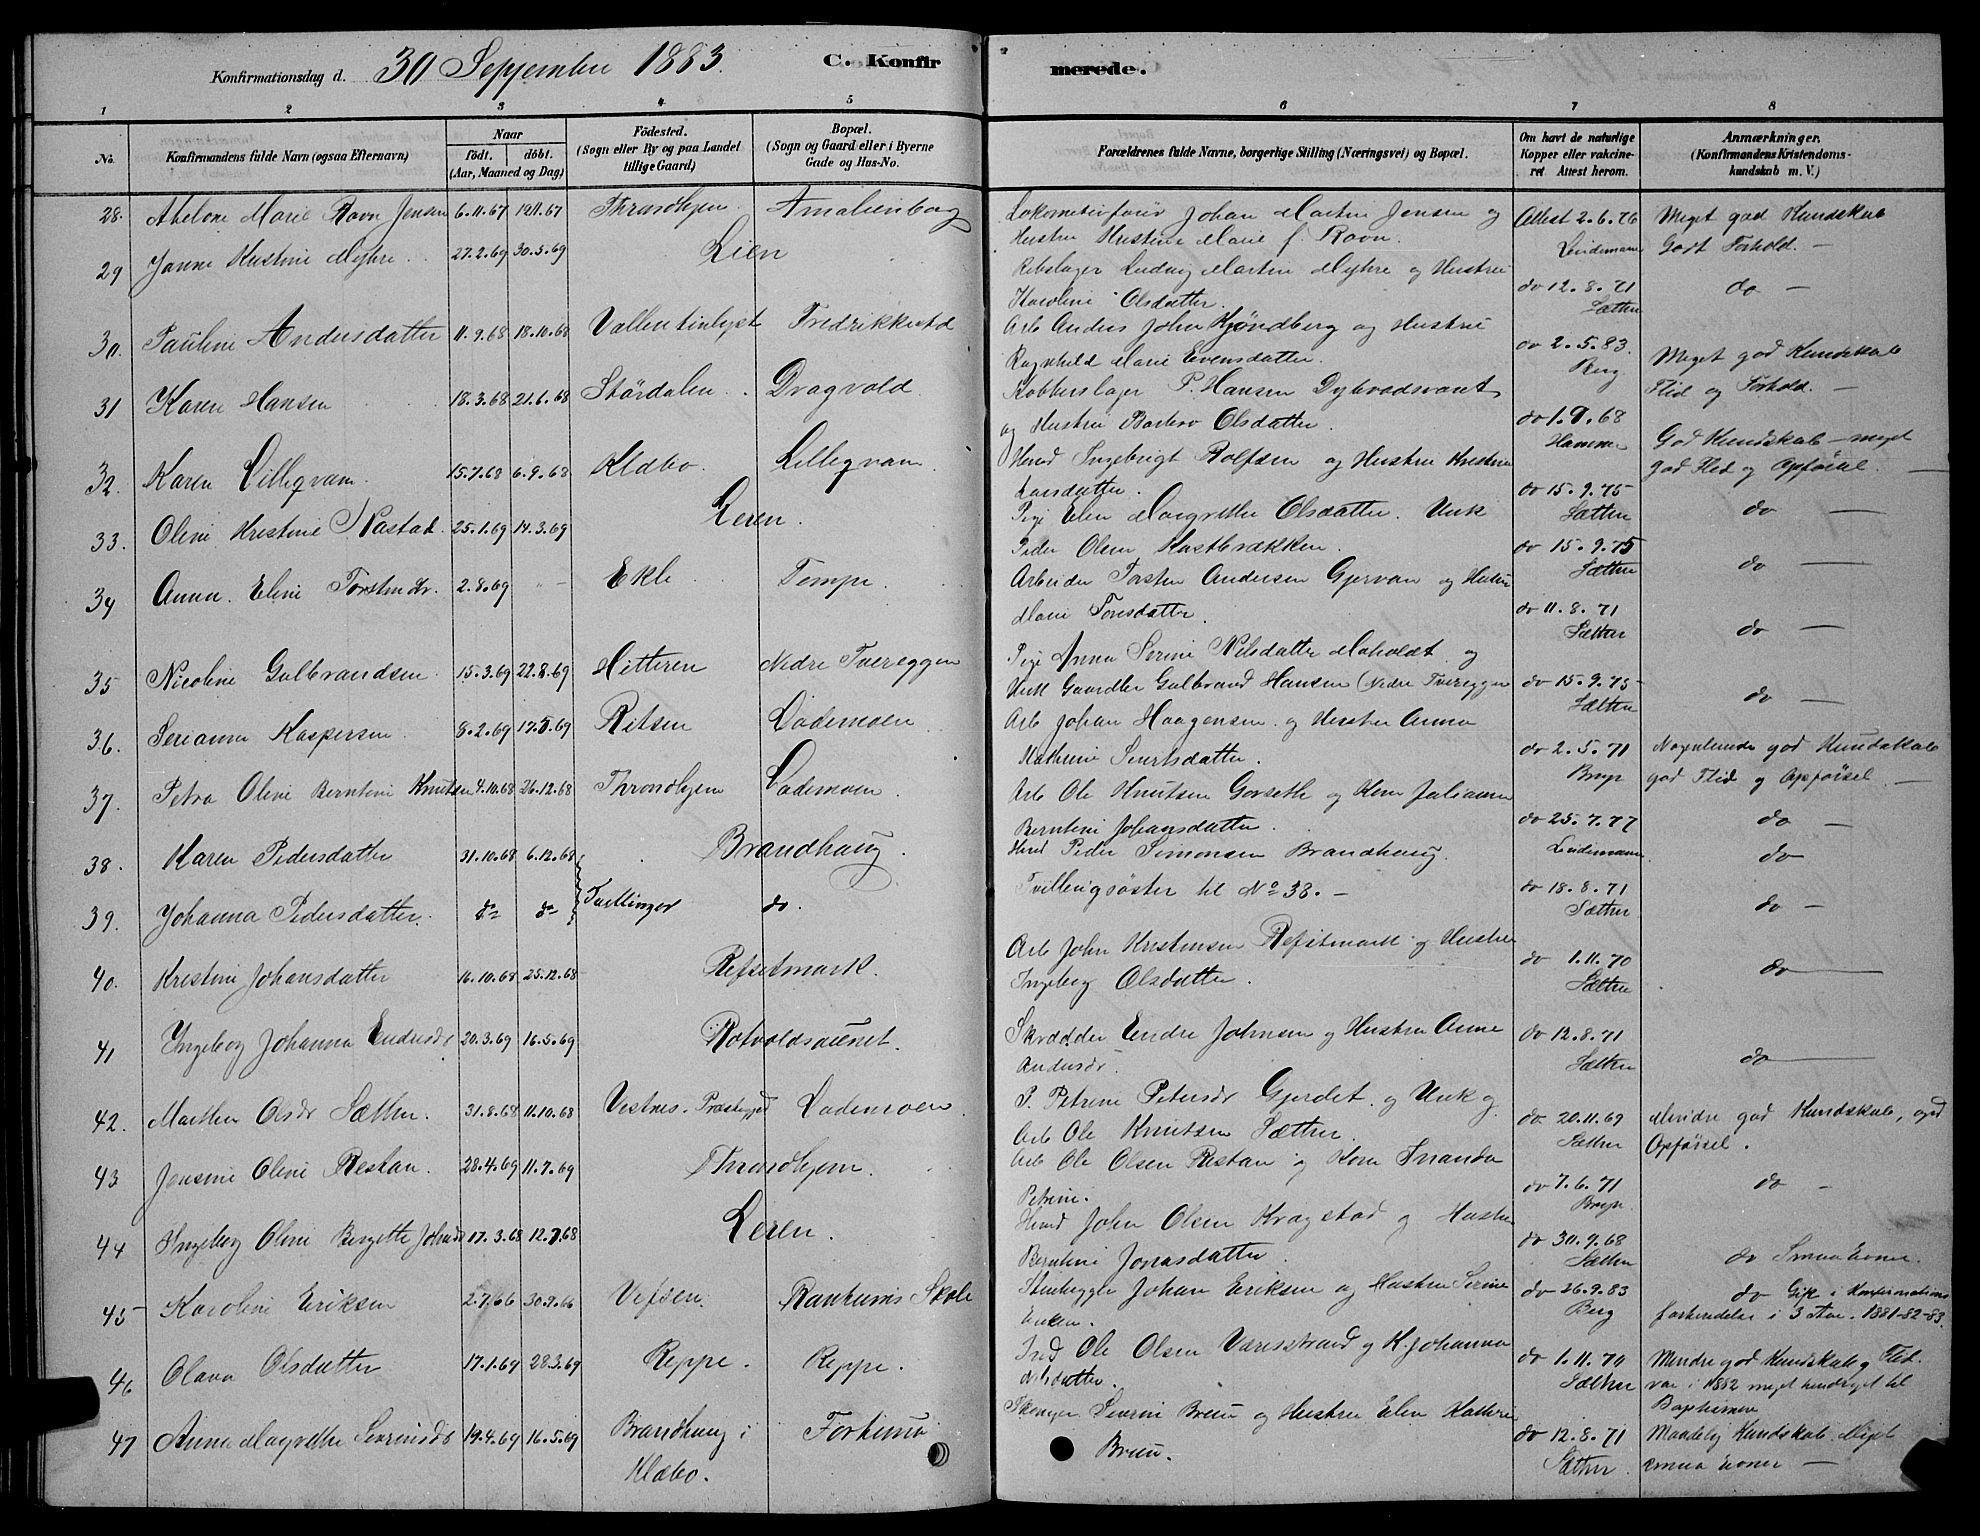 Konfirmationsdag d. 30 September 1883. C. Konfirmerede.
1 2 3 4 5 6 7 8
No. Konfirmandens fulde Navn (ogsaa Efternavn) Naar födt. döbt. (Aar, Maaned og Dag) Födested. (Sogn eller By og paa Landet tillige Gaard) Bopæl. (Sogn og Gaard eller i Byerne Gade og Hus-No. Forældrenes fulde Navne, borgerlige Stilling (Næringsvei) og Bopæl. Om havt de naturlige Kopper eller vakcineret Attest herom. Anmærkninger. (Konfirmandens Kristendomskundskab m. V.)
28. Abelone Marie Ravn Jensen 6.11.67 Throndhjem Amalienborg Lokomotivförer Johan Martin Jensen og Attest 2.6.76 Meget god Kundskab
Hustru Kristine Marie f. Ravn. Lindemann Godt Forhold. —
29 Janna Kristine Myhre 27.2.69 30.5.69 Lien Rebslager Ludvig Martin Myhre og Hustru
Karoline Olsdatter. do 12.8.71 Sæther do —
30. Pauline Andersdatter 11.9.68 18.10.68 Vallentinlyst Arb Anders John og Hustru
Ragnhild Marie Evensdatter. do 2.5.83. Berg Meget god Kundskab
31 Karen Hansen 18.3.68 21.6.68 Stördalen Dragvold Kobberslager P. Hansen Flid og Forhold. —
og Hustru Barbro Olsdatter. do 1.9.68 Hammer God Kundskab — meget
32. Karen Lillegvam 15.7.68 6.9.68 Klæbo. Lillegvam. Ingebrigt Rolfsen og Hustru Kristine god Flid og Opförsel. —
Larsdatter. do 15.9.75
33. Oline Kristine Nastad 25.1.69 14.3.69 Leren. Pige Elen Margrethe Olsdatter. Unk Sæther do —
Peder Olsen do 15.9.75
34 Anna Eline Torstensdr. 2.8.69 Ekle Tempe. Arbeider Torsten Andersen Gjervan og Hustru Sæther do —
Marie Tonsdatter. do 11.8.71
Sæther do —
35 Nicoline Gulbrandsen 15.3.69 22.8.69 Hitteren Nedre Tvereggen Pige Anna Serine Nilsdatter Moholdt og
Gulbrand Hansen (Nedre Tvereggen do 15.9.75
36. Serianna Kaspersen 8.2.69 17.5.69 Ritsen Lademoen Arb Johan Haagensen og Hustru Anna Sæther do —
Kathrine Sivertsdatter. do 2.5.71 Nogenlunde god Kundskab
37. Petra Oline Berntine Knutsen 4.10.68 26.12.68 Throndhjem Lademoen. Arb Ole Knutsen Gorseth og Kone Julianna god Flid og Opförsel —
Berntine Johansdatter. do 25.7.77 do —
38. Karen Pedersdatter 31.10.68 6.12.68 Brandhaug. Peder Simonsen Brandhaug. Lindemann. do
39. Johanna Pedersdatter. do do Tvillinger do. Tvillingsöster til No 38. — do 18.8.71 Sæther do —
40. Kristine Johansdatter 16.10.68 25.12.68 Refsetmark. Arb John Kristensen Refsetmark og Hustru
Ingeborg Olsdatter. do 1.11.70 Sæther do —
41 Ingeborg Johanna Endresdr 20.3.69 16.5.69 Rotvoldsaunet. Skrædder Endre Johnsen og Hustru Anne do 12.8.71
Andersdr. Sæther do —
42. Marthea Olsdr Sæther. 31.8.68 11.10.68 Vestnes Præstegjeld Lademoen. P. Petrine Petersdr Gjerdet og Unk g.
Arb Ole Knutsen Sæther. do 20.11.69 Mindre god Kundskab, god
43 Jensine Oline Restan. 28.4.69 11.7.69 Throndhjem. Arb Ole Olsen Restan og Kone Sæther Opförsel.
Petrine. do 7.6.71 do —
44 Ingeborg Oline Bergitte 17.3.68 12.7.68 Leren. John Olsen Kragstad og Hustru
Berntine Jonasdatter. do 30.9.68 Sæther do Smaa Evner.
45 Karoline Eriksen 2.7.66 30.9.66 Vefsen. Ranheims Skole Stenhugger Johan Eriksen og Hustru Serine do 26.9.83 do Gik i Konfirmations
Berg forberedelse i 3 Aar. 1881-82-83.
46 Olava Olsdatter 17.1.69 28.3.69 Reppe. Reppe. Ind Ole Olsen og K. Johanna
do 1.11.70 Mindre god Kundskab og Flid.
Sæther var i 1882 meget til
47 Anna Margrethe Severinsdr 19.4.69 16.5.69 Brandhaug i Severin Bruu og Hustru Elen Kathrine Baptismen
Klæbo. Bruu. do 12.8.71 Sæther. Maadelig Kundskab. Meget
smaa Evner —